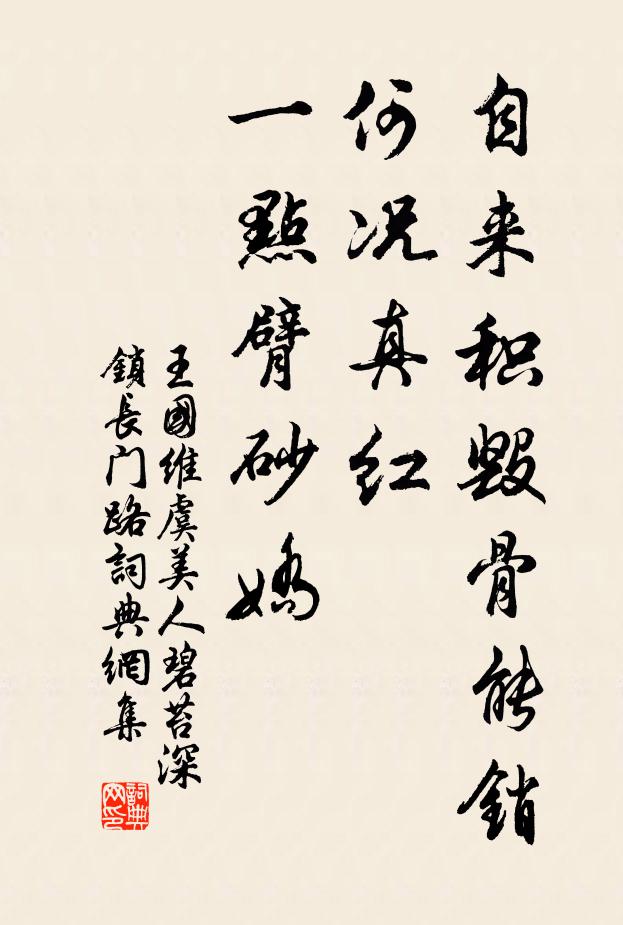 自来积毁骨能銷
何况真红
一點臂砂嬌
王國維虞美人碧苔深
鎖長门路詞典網集
詞典网印